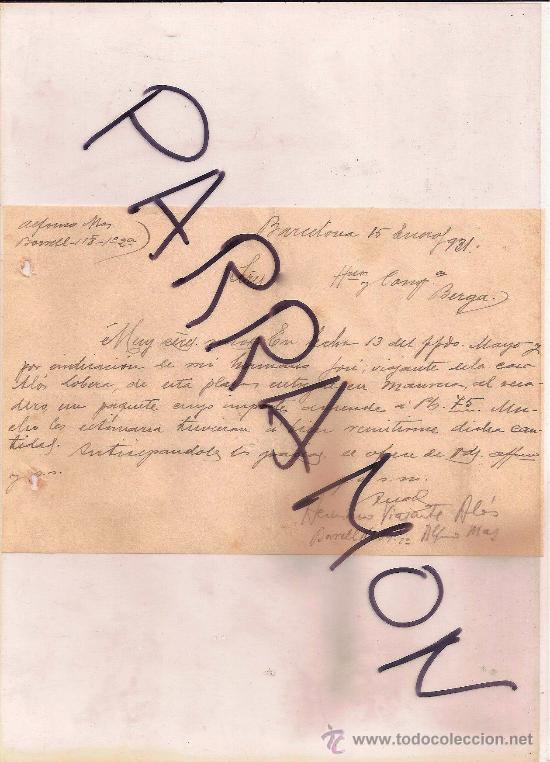 PARRAMON
Alfonso Mas
Borrell-118-1º2ª
Barcelona 15 Enero 931.
Hnos y Compª
Berga.
Muy En fecha 13 del ppdo. Mayo y
por indicacion de mi hermano José, viajante de la casa
Alós de esta plaza en Manresa, al
un paquete cuyo asciende á Pts. 75. Mu-
cho les estimaria tuvieran á bien remitirme dicha can-
tidad. Anticipandoles gracias, se ofrece de Vds. affmo
y s.s.
q. s. m.
Hermano Viajante Alós
Borrell Alfonso Mas
todocoleccion
www.todocoleccion.net